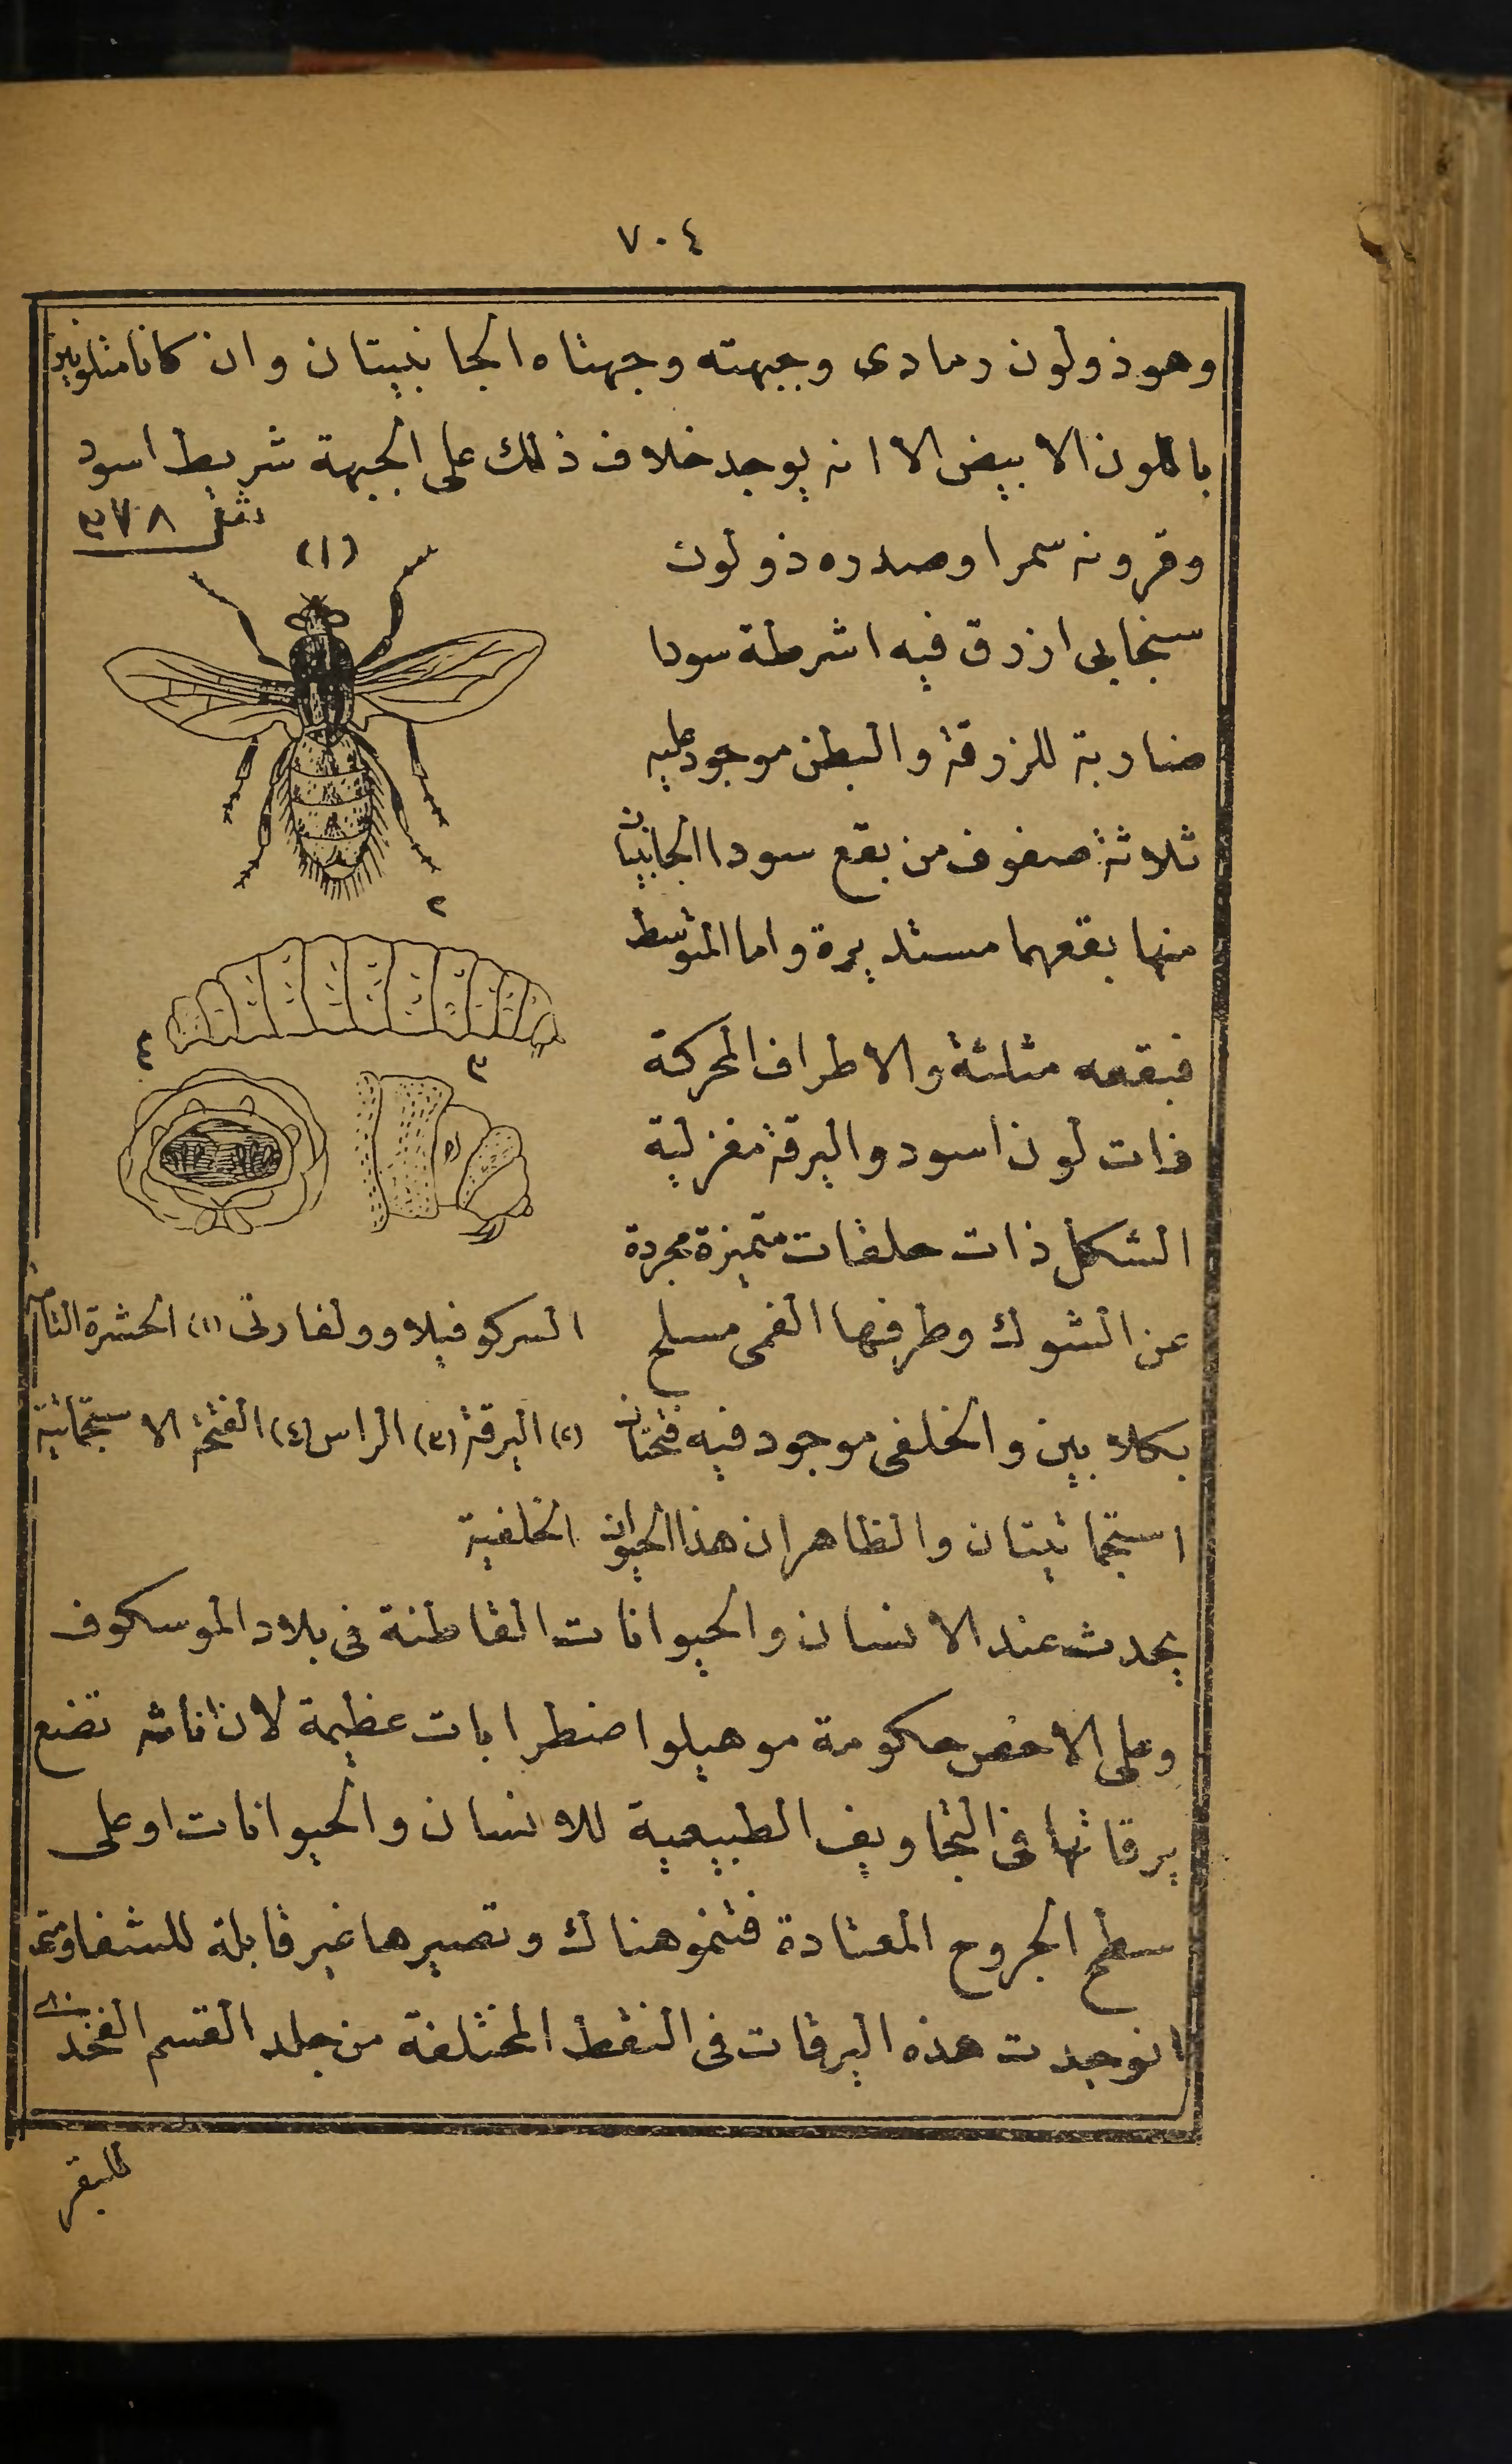 ٧٠٤
وهو ذو لون رمادى وجبهته وجهتاه الجانبيتان وان كانا متلونين
باللون الابيض الا انه يوجد خلاف ذلك على الجبهة شريط اسود
وقرونه سمرا وصدره ذو لون
سنجابى ازرق فيه اشرطة سودا
ضاربة للزرقة والبطن موجود عليه
ثلاثة صفوف من بقع سودا الجانبيان
منها بقعهما مستديرة واما المتوسط
فبقعه مثلثة والاطراف المحركة
ذات لون اسود واليرقة مغزلية
الشكل ذات حلقات متميزة مجردة
عن الشوك وطرفها الفمى مسلح
بكلابين والخلفى موجود فيه فتحتان
استجماتيتان والظاهر ان هذا الحيوان
شكل ٣٧٨
(١)
٢
٣
٤
السركوفيلا وولفارتى (١) الحشرة التامة
(٢) اليرقة (٣) الراس (٤) الفتحة الاستجماتية
الخلفية
يحدث عند الانسان والحيوانات القاطنة فى بلاد الموسكوف
وعلى الاخص حكومة موهيلو اضطرابات عظيمة لان اناثه تضع
يرقاتها فى التجاويف الطبيعية للانسان والحيوانات او على
سطح الجروح المعتادة فتنمو هناك وتصيرها غير قابلة للشفا ومتى
وجدت هذه اليرقات فى النقط المختلفة من جلد القسم الفخذى
للبقر